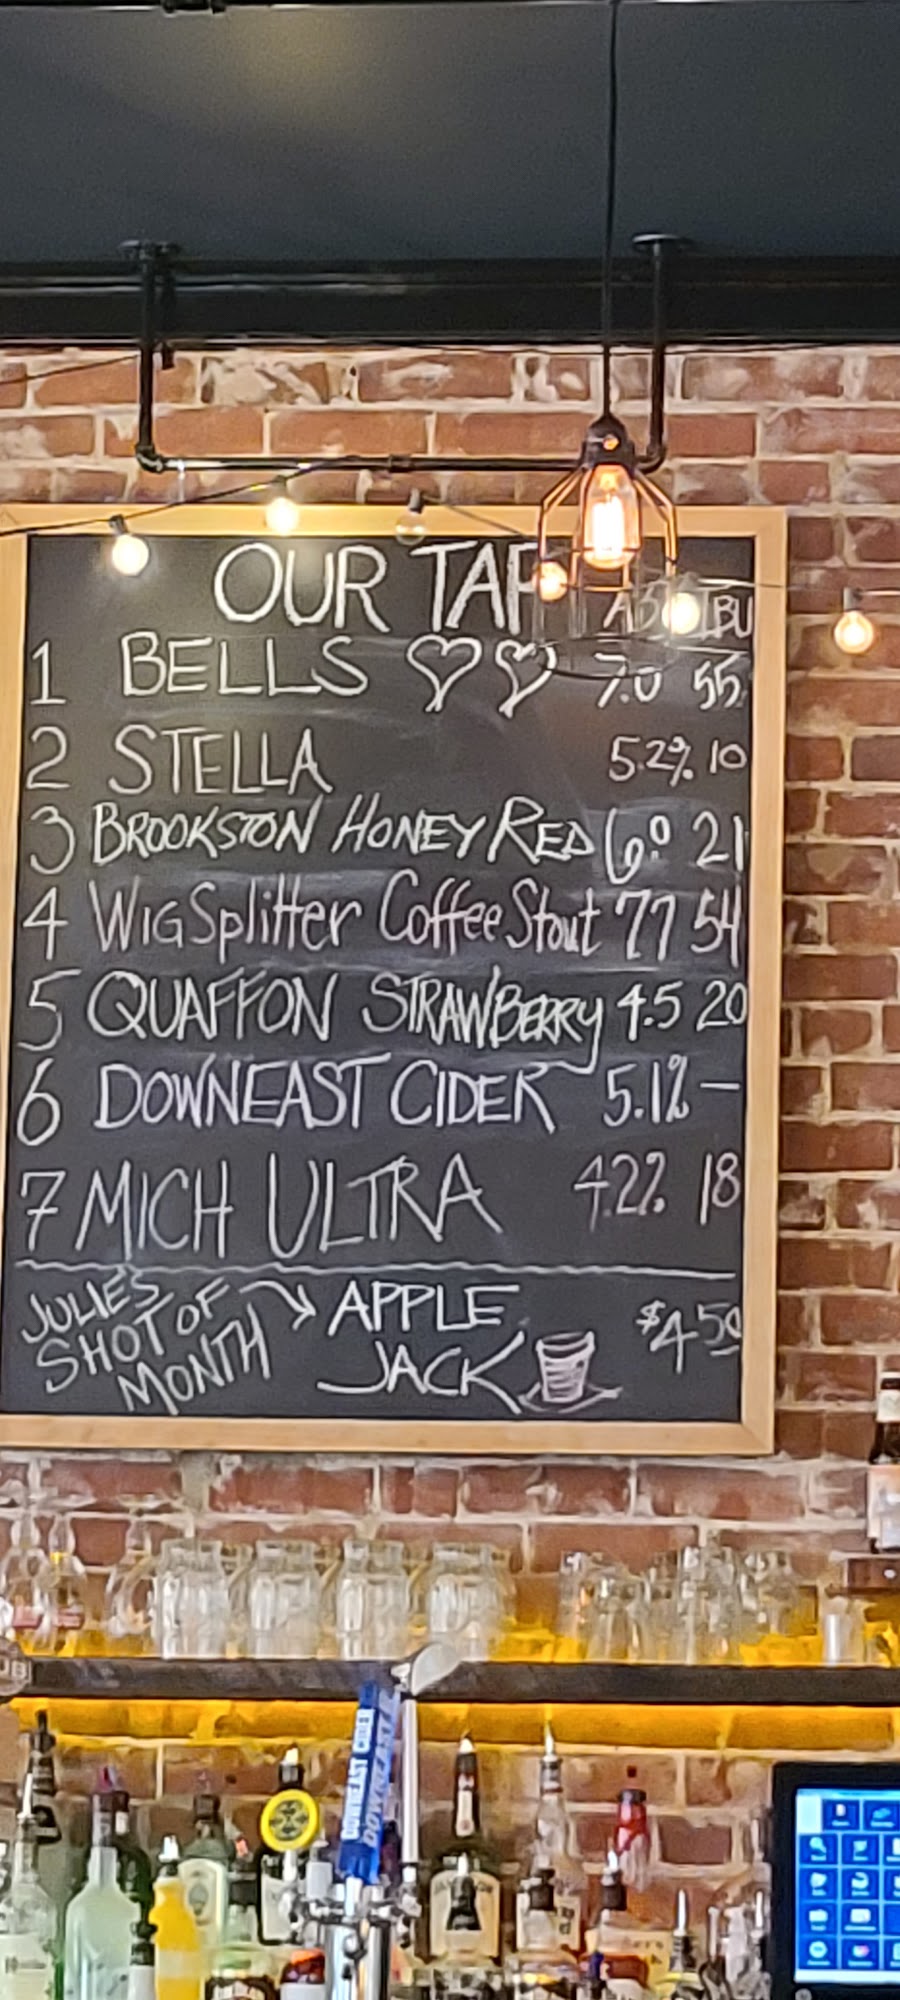 OUR TAP
1 BELLS ♡♡ 7.0 55
2 STELLA 5.2% 10
3 BROOKSTON HONEY RED 6.0 21
4 WIGSplitter Coffee Stout 77 54
5 QUAFFON STRAWBERRY 4.5 20
6 DOWNEAST CIDER 5.1% —
7 MICH ULTRA 4.2% 18
JULIE'S
SHOT OF
MONTH
APPLE
JACK
$4.50
DOWNEAST CIDER